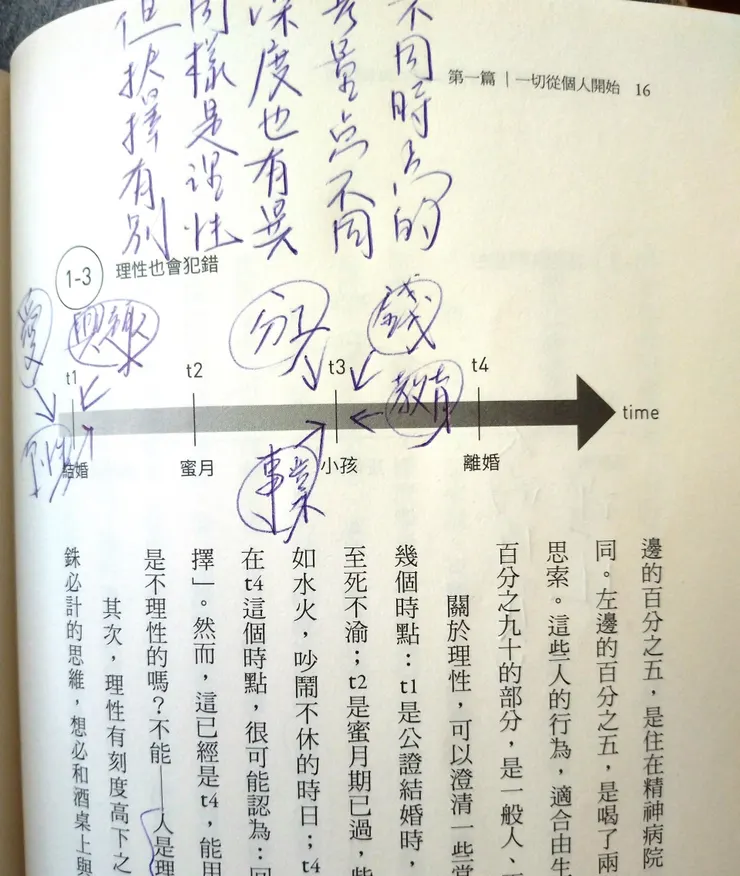 第一篇｜一切從個人開始 16
不同時点的
考量点不同
深度也有異
同樣是理性
但抉擇有別
1-3 理性也會犯錯
愛
錢
t1 t2 t3 t4
教育
time
結婚 蜜月 小孩 離婚
事業
邊的百分之五，是住在精神病院
同。左邊的百分之五，是喝了兩
思索。這些人的行為，適合由生
百分之九十的部分，是一般人、
關於理性，可以澄清一些
幾個時點：t1是公證結婚時，
至死不渝；t2是蜜月期已過，
如水火，吵鬧不休的時日；t4
在t4這個時點，很可能認為：
擇」。然而，這已經是t4，能用
是不理性的嗎？不能——人是理
其次，理性有刻度高下之
銖必計的思維，想必和酒桌上與